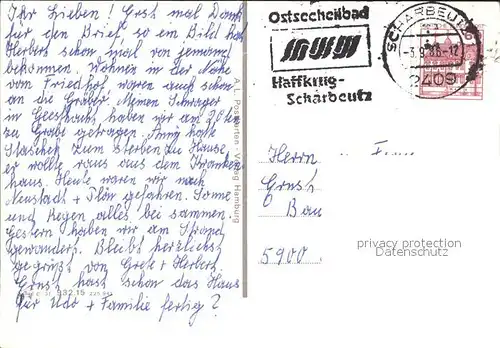 Ihr Lieben! Erst mal Dank
für den Brief, so ein Bild hat
Herbert schon mal von jemand
bekommen. Wohnen in der Nähe
vom Friedhof, waren auch schon
an die Gräber. Meinen Schwager
in Geesthacht haben wir am 20.
zu Grabe getragen. Anny hatte
zum sterben zu Hause,
er wollte raus aus dem Kranken
haus. Heute waren wir nach
Neustadt + Plön gefahren. Sonne
und Regen alles bei sammen.
Gestern haben wir am Strand
gewandert. Bleibt herzlichst
gegrüßt von Grete + Herbert.
Ernst hast schon das Haus
für Udo + Familie fertig?
A.L. Postkarten-Verlag Hamburg
Ostseeheilbad
Haffkrug-
Scharbeutz
SCHARBEUTZ
2409
Herrn
Ernst
Bau
5900
privacy protection
Datenschutz